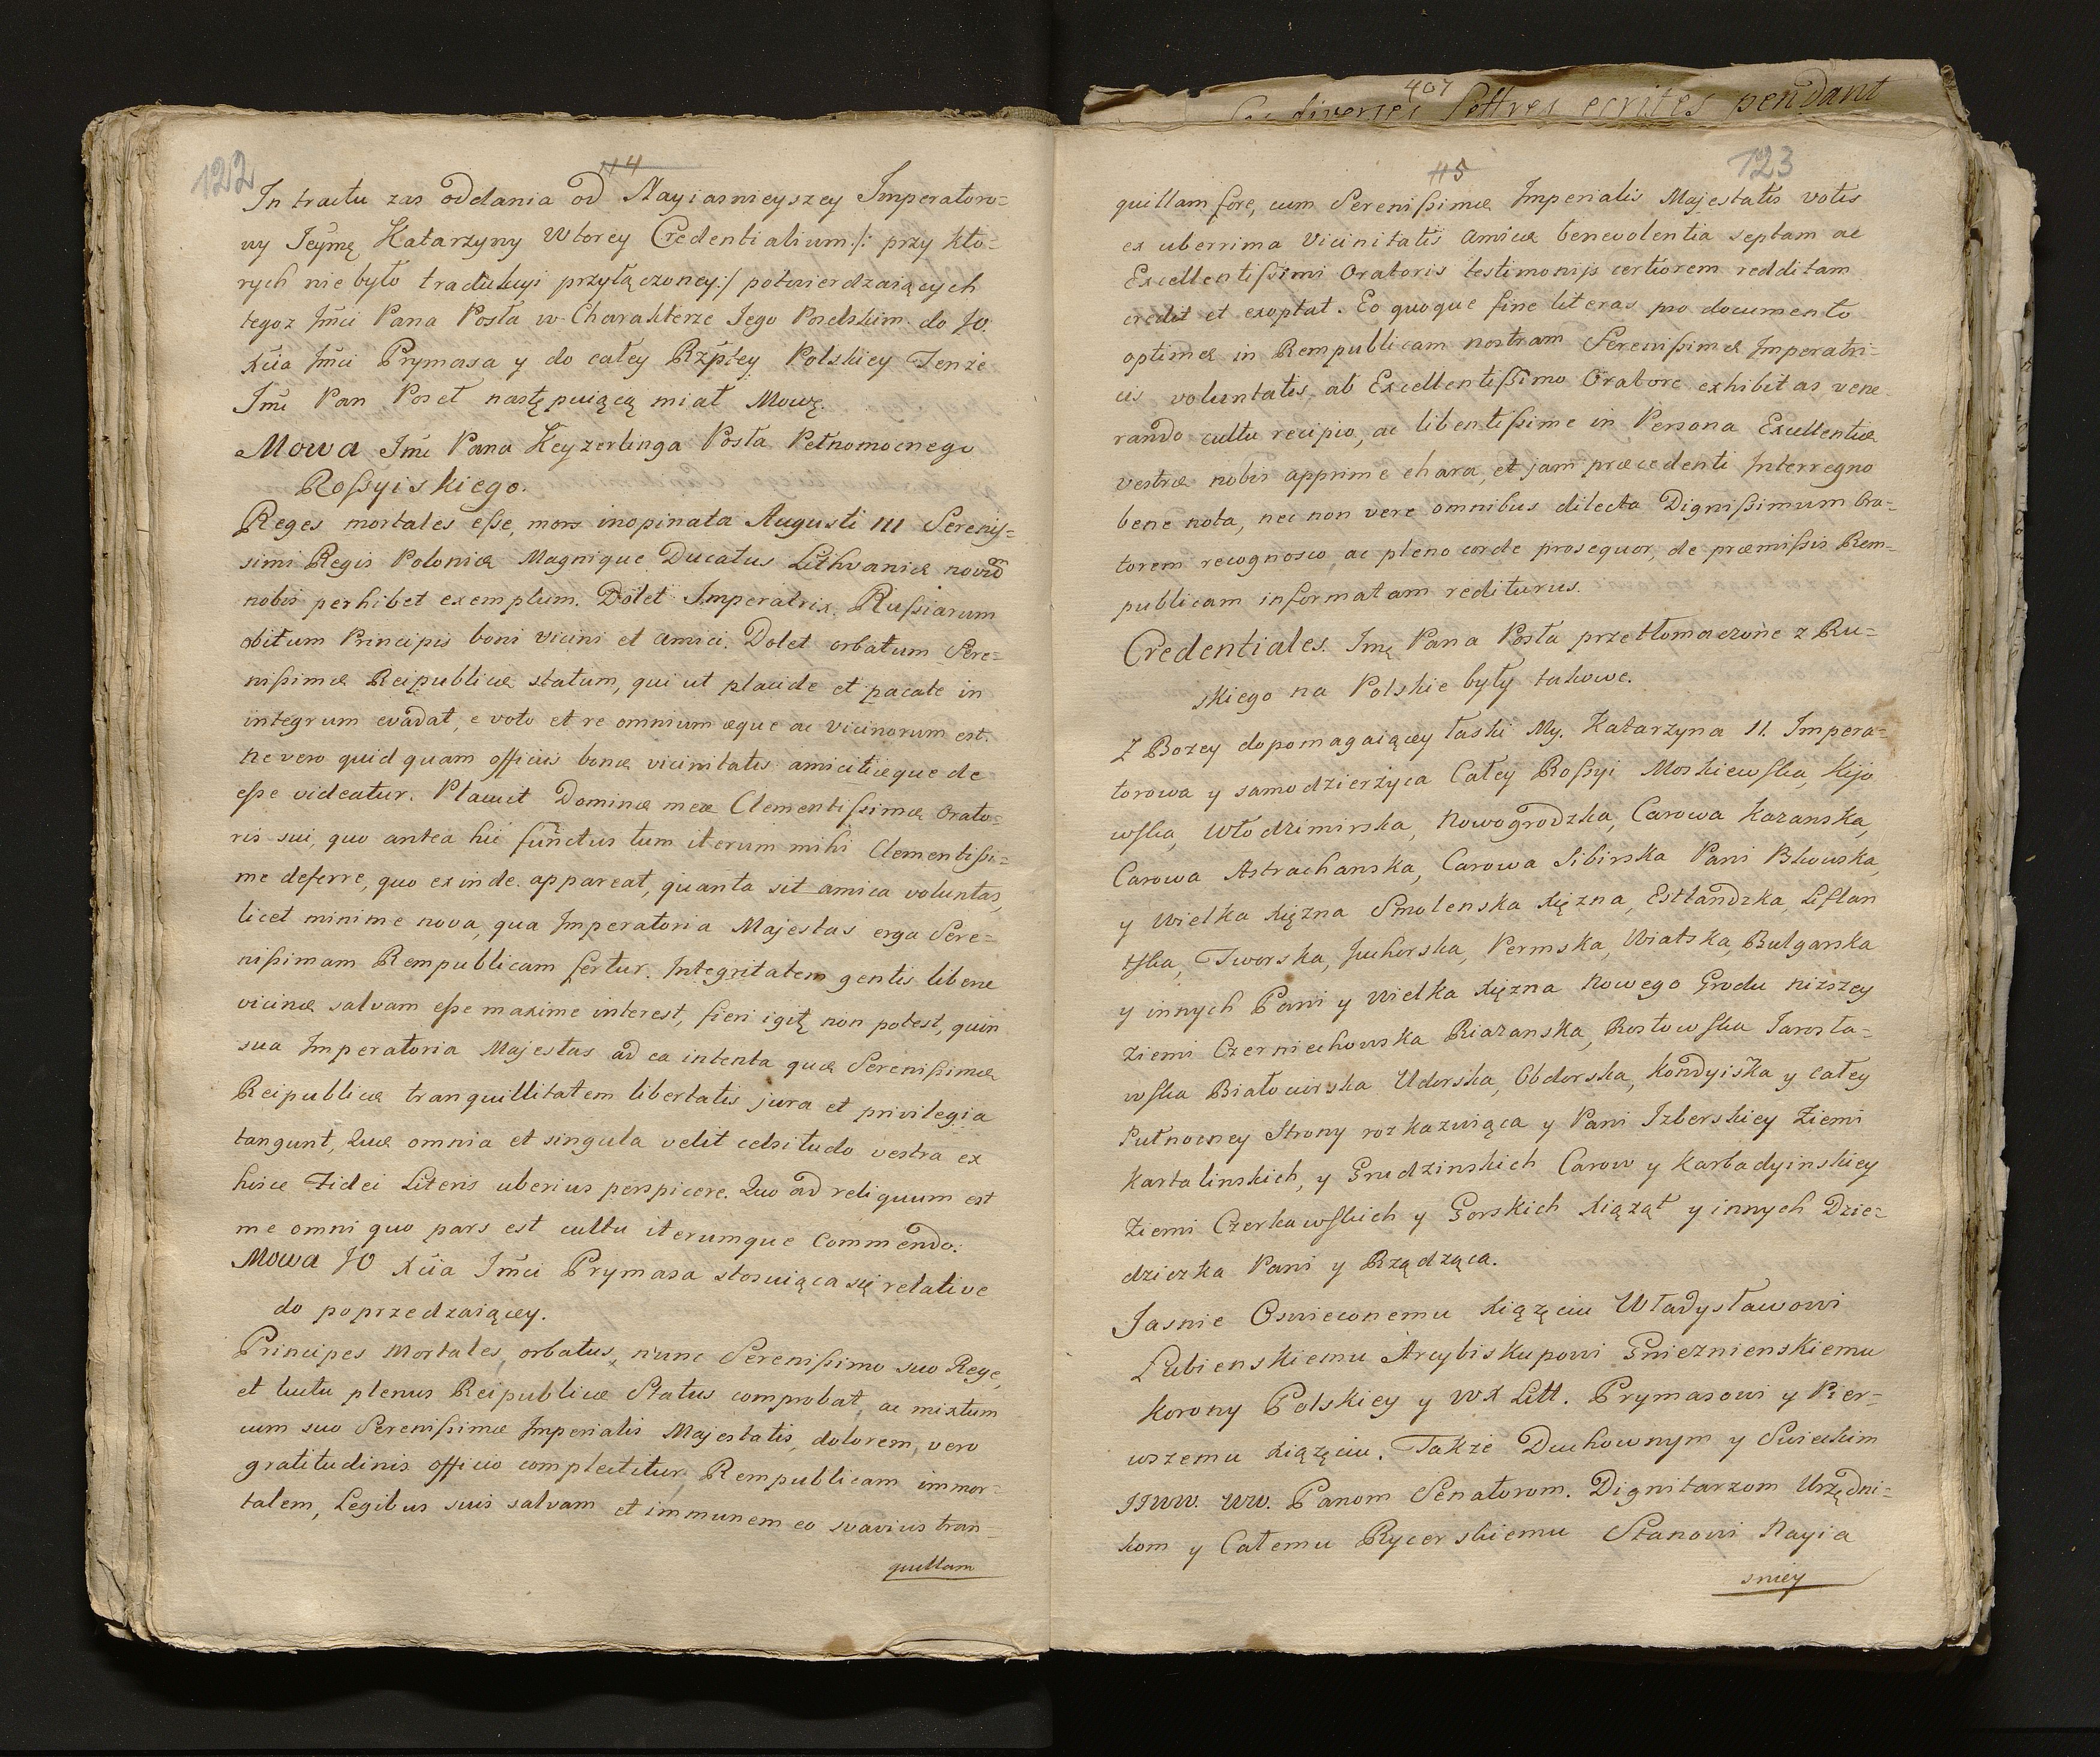 122
114
In tractu zas oddania od Nayiasnieyszey Imperatoro=
wy Jeymę Katarzyny Wtorey Credentialium /: przy kto=
rych nie było tradukcyi przyłączoney :/ potwierdzaiących
tegoz Jmci Pana Posła w Charakterze Jego Poselskim do JO.
Xcia Jmci Prymasa y do całey Rzptey Polskiey Tenze
Jmć Pan Poseł następuiącą miał Mowę.
Mowa Jmć Pana Keyzerlinga Posła Pełnomocnego
Roßyiskiego.
Reges mortales eße, mors inopinata Augusti III Serenis=
simi Regis Poloniæ Magnique Ducatus Lithvaniæ novũ
nobis perhibet exemplum. Dolet Imperatrix Rußiarum
obitum Principis boni vicini et amici. Dolet orbatum Sere=
nißimæ Reipublicæ statum, qui ut placide et pacate in
integrum evadat, e voto et re omnium æque ac vicinorum est.
Ne vero quid quam officiis bonæ vicinitatis amicitiæque de
eße videatur. Placuit Dominæ meæ Clementißimæ Orato=
ris sui, quo antea hic functus tum iterum mihi Clementißi=
me deferre, quo exinde appareat, quanta sit amica voluntas,
licet minime nova, qua Imperatoria Majestas erga Sere=
nißimam Rempublicam fertur. Integritatem gentis liberæ
vicinæ salvam eße maxime interest, fieri igit̃ non potest, quin
sua Imperatoria Majestas ad ea intenta quæ Serenißimæ
Reipublicæ tranquillitatem libertatis jura et privilegia
tangunt, Quæ omnia et singula velit celsitudo vestra ex
hisce Fidei Literis uberius perspicere. Quo ad reliquum est
me omni quo pars est cultu iterumque Commendo.
Mowa JO Xcia Jmci Prymasa stosuiąca się relative
do poprzedzaiącey.
Principes Mortales, orbatus, nunc Serenißimo suo Rege,
et luctu plenus Reipublicæ Status comprobat, ac mixtum
cum suo Serenißimæ Imperialis Majestatis, dolorem, vero
gratitudinis officio complectitur, Rempublicam immor=
talem, Legibus suis salvam et immunem eo svavius tran=
quillam
407
diverses Lettres ecrites pendant
115
123
quillam fore, cum Serenißimæ Imperialis Majestatis votis
ex uberrima Vicinitatis Amicæ benevolentia septam ac
Excellentißimi Oratoris testimonijs certiorem redditam
credit et exoptat. Eo quoque fine literas pro documento
optimæ in Rempublicam nostram Serenißimæ Imperatri=
cis voluntatis, ab Excellentißimo Oratore exhibitas vene=
rando cultu recipio, ac libentißime in Persona Excellentiæ
vestræ nobis apprime chara, et jam præcedenti Interregno
bene nota, nec non vere omnibus dilecta Dignißimum Ora=
torem recognosco, ac pleno corde prosequor, de præmißis Rem=
publicam informatam rediturus.
Credentiales. Jmę Pana Posła przetłomaczone z Ru=
skiego na Polskie były takowe.
Z Bozey dopomagaiącey łaski My. Katarzyna II. Impera=
torowa y samodzierżyca Całey Roßyi Moskiewska, Kijo
wska, Włodzimirska, Nowogrodzka, Carowa Kazanska,
Carowa Astrachanska, Carowa Sibirska Pani Pskowska,
y Wielka Xiężna Smolenska Xiężna, Estlandzka, Liflan
tska, Tworska, Juhorska, Permska, Wiatska, Bulgarska
y innych Pani y Wielka Xiężna Nowego Grodu niższey
Ziemi Czerniechowska Riazanska, Rostowska Jarosła=
wska Białoierska Udorska, Obdorska, Kondyiska y całey
Pułnocney Strony rozkazuiąca y Pani Izberskiey Ziemi
Kartalinskich, y Grudzinskich Carow y Karbadyinskiey
Ziemi Czerkawskich y Gorskich Xiążąt y innych Dzie=
dziczka Pani y Rządząca.
Jasnie Oswieconemu Xiążęciu Władysławowi
Łubienskiemu Arcybiskupowi Gnieznienskiemu
Korony Polskiey y WX Litt. Prymasowi y Pier=
wszemu Xiążęciu. Także Duchownym y Swieckim
JJWW. WW. Panom Senatorom. Dignitarzom Urzędni=
kom y Całemu Rycerskiemu Stanowi Nayia
sniey